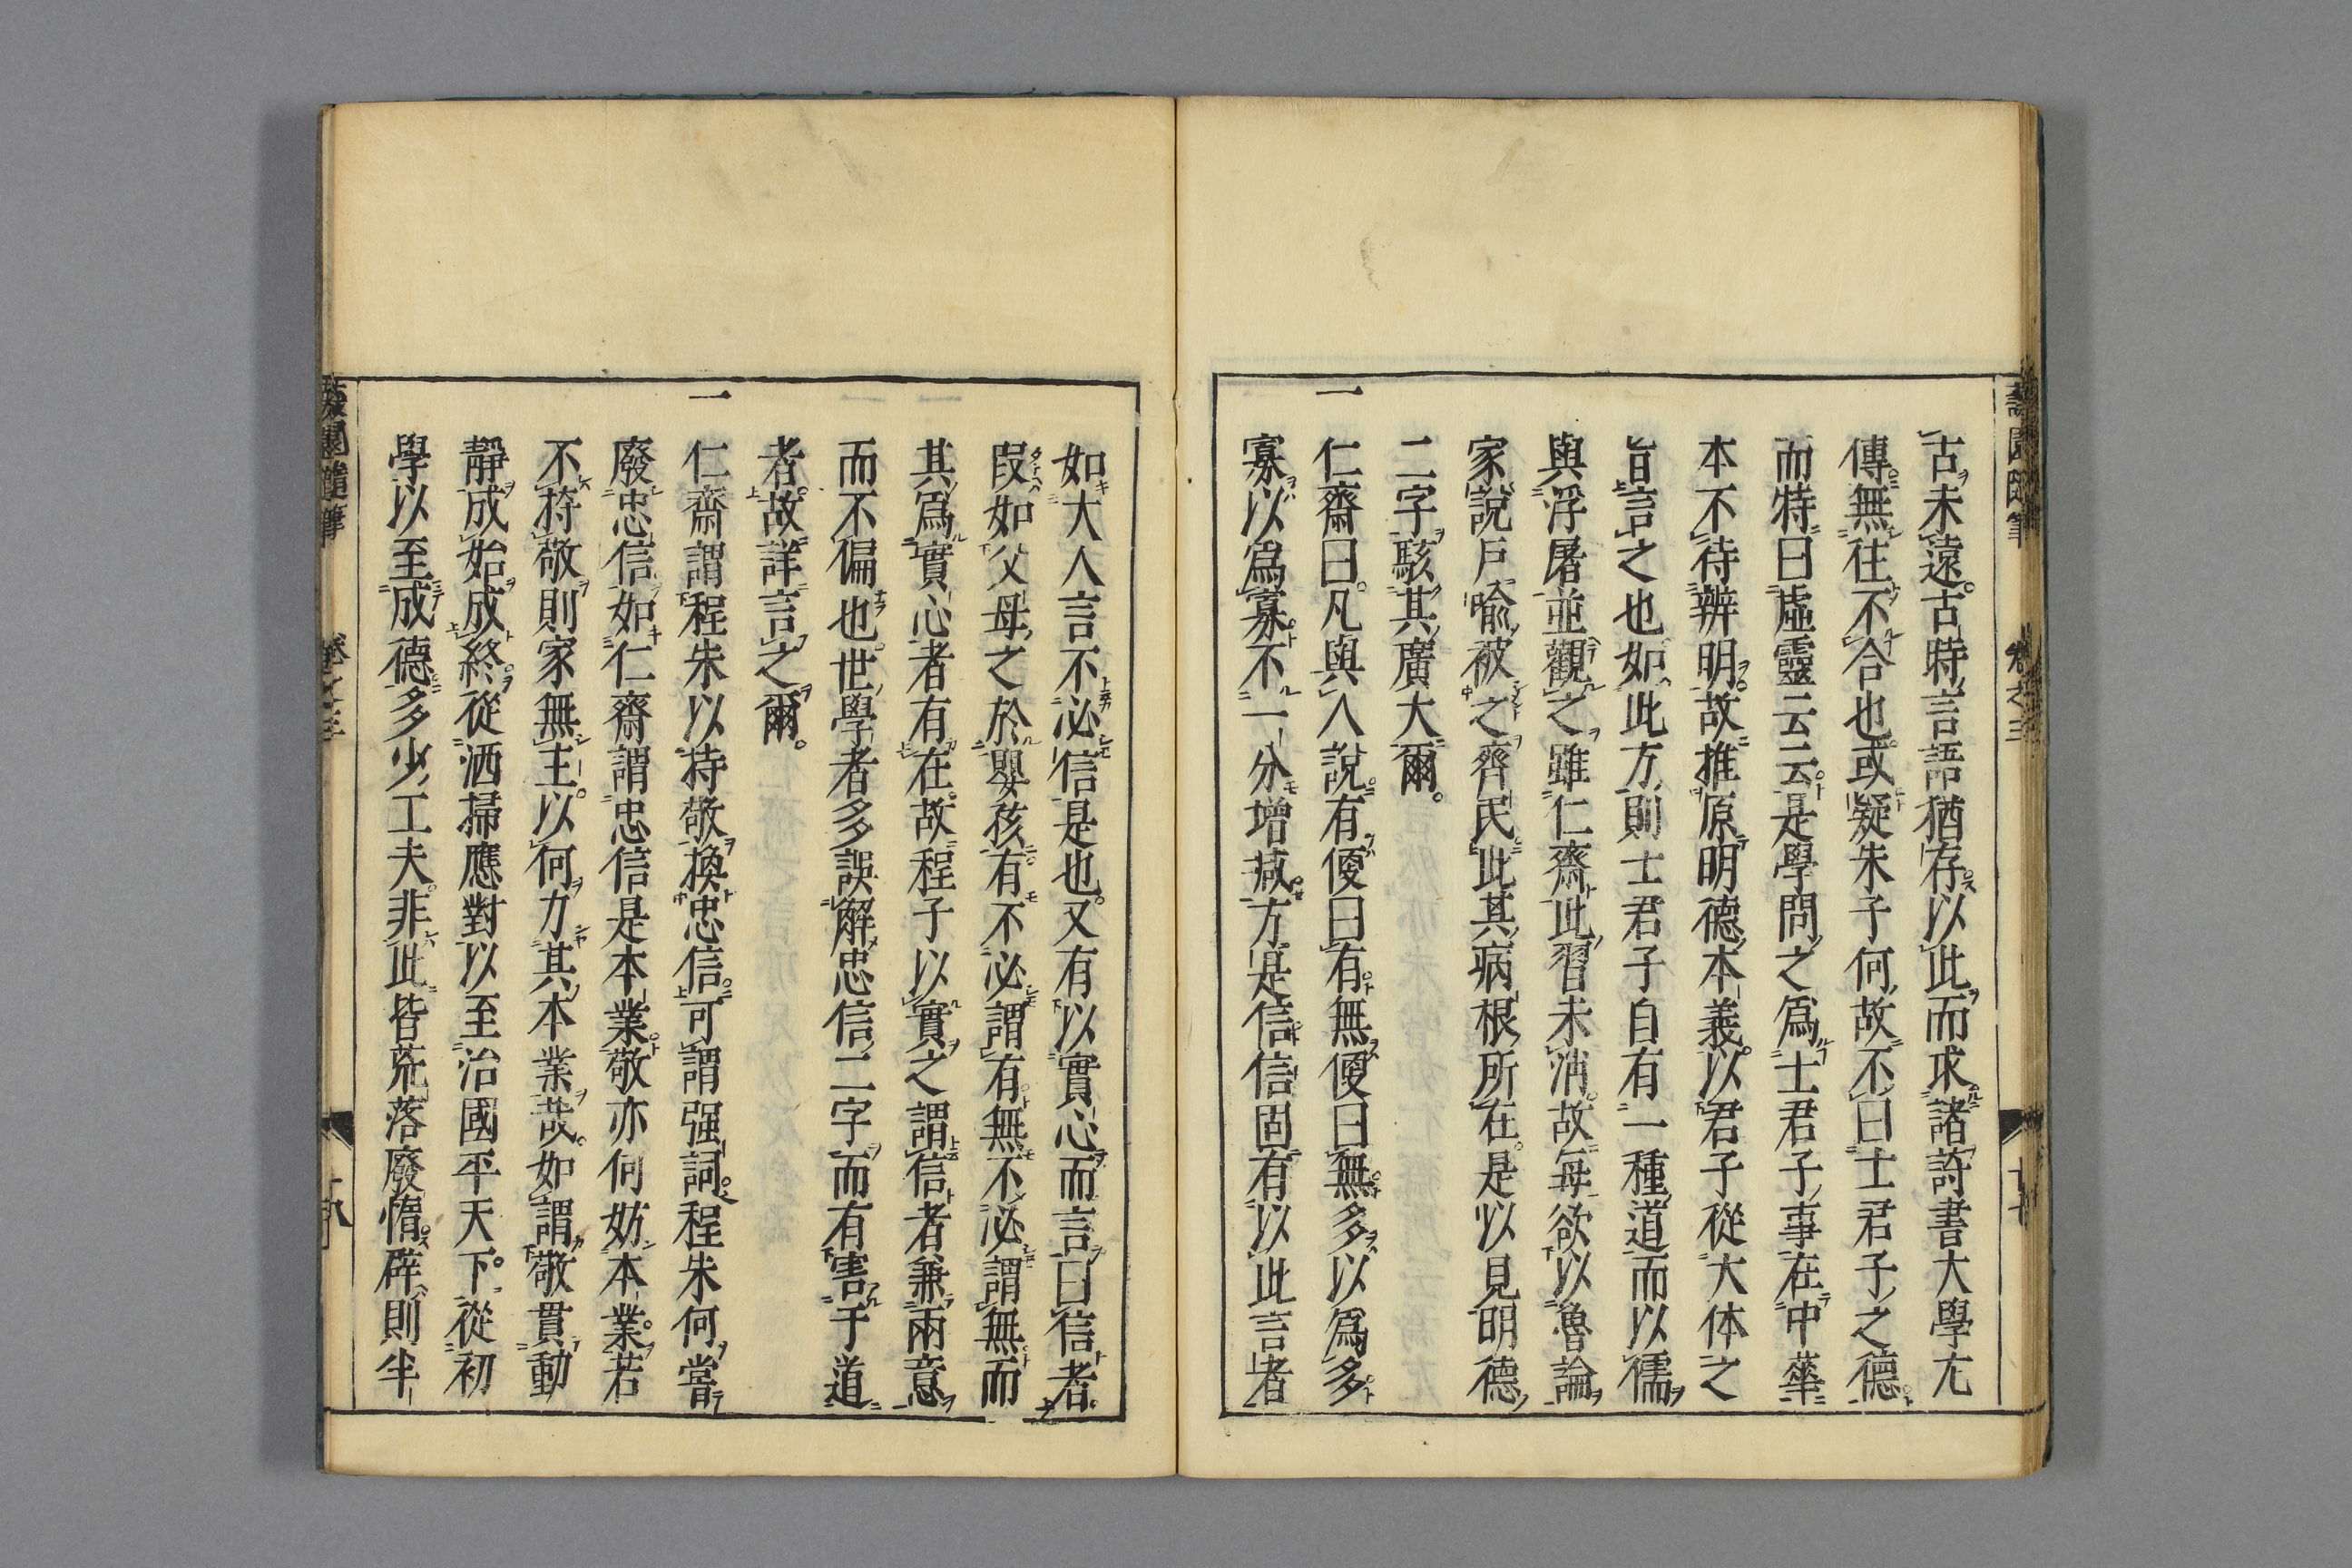 古未遠。古時言語猶存。以此而求諸詩書大學尢
傳無往不合也。或疑朱子何故不曰士君子之德
而特曰虛靈云云。是學問之爲士君子事在中華
本不待辨明。故推原明德本義。以君子從大体之
旨言之也。如此方則士君子自有一種道而以儒
與浮屠並觀之。雖仁齋此習未消。故每欲以魯論
家說戶喩被之齊民。此其病根所在。是以見明德
二字駭其廣大爾。
一
仁齋曰。凡與人說有便曰有無便曰無。多以爲多
寡以爲寡。不一分增减。方是信。信固有以此言者
如大人言不必信是也。又有以實心而言曰信者。
叚如父母之於嬰孩。有不必謂有。無不必謂無。而
其爲實心者有在。故程子以實之謂信者兼兩意
而不偏也。世學者多誤解忠信二字而有害于道
者。故詳言之爾。
一
仁齋謂程朱以持敬換忠信。可謂强詞。程朱何嘗
廢忠信。如仁齋謂忠信是本業。敬亦何妨本業。若
不持敬則家無主。以何力其本業哉。如謂敬貫動
靜成始成終。從洒掃應對以至治國平天下。從初
學以至成德。多少工夫。非此皆荒落廢惰。辟則半
卷之三